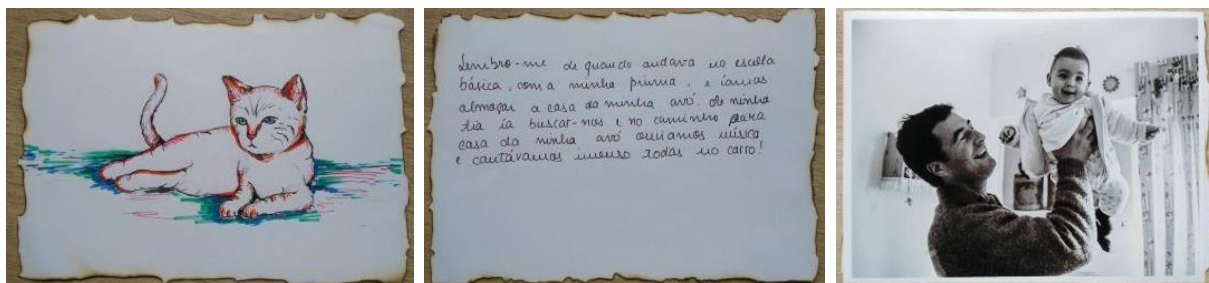 Lembro-me de quando andava na escola
básica, com a minha prima, e íamos
almoçar a casa da minha avó. A minha
tia ia buscar-nos e no caminho para
casa da minha avó ouvíamos música
e cantávamos imenso todas no carro!